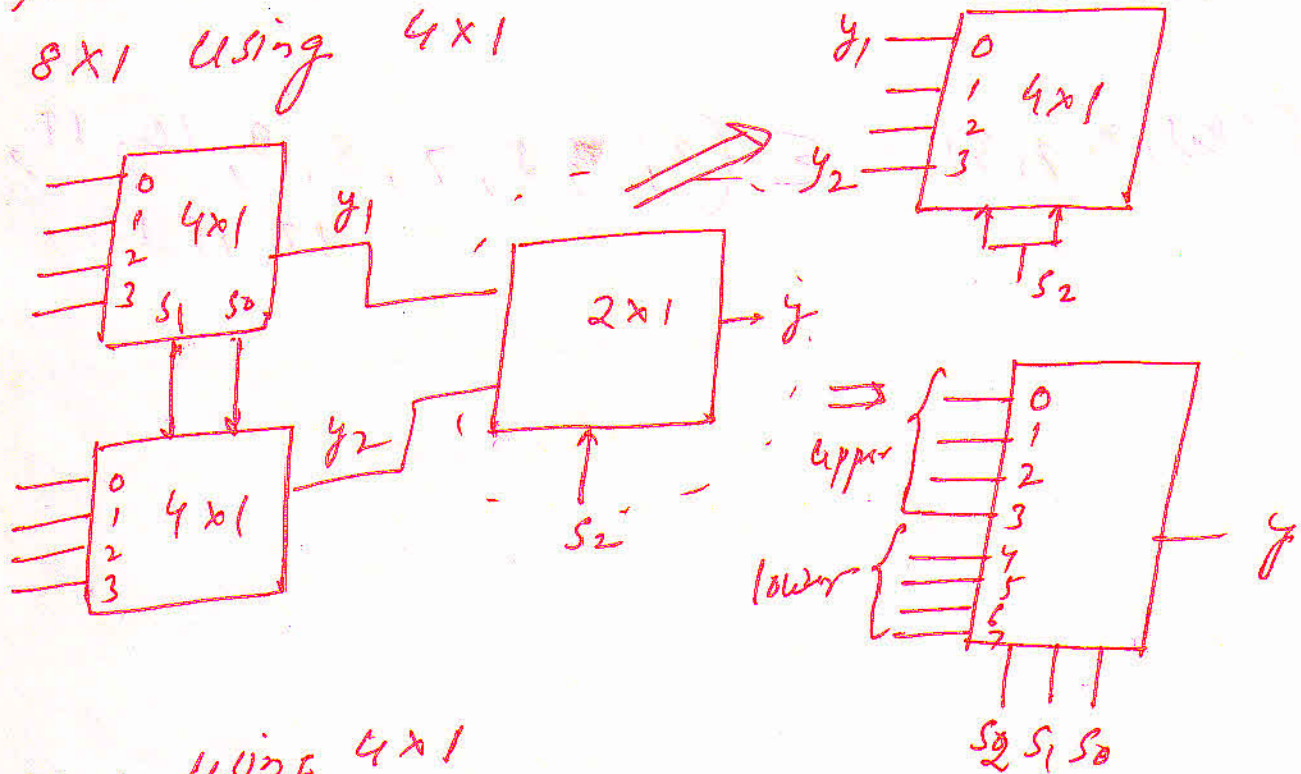 8×1 using 4×1
0
1
2
3
4×1
S1 S0
y1
0
1
2
3
4×1
y2
2×1
y
S2
y1
y2
0
1
2
3
4×1
S2
⇒
upper
lower
0
1
2
3
4
5
6
7
y
S2 S1 S0
using 4×1